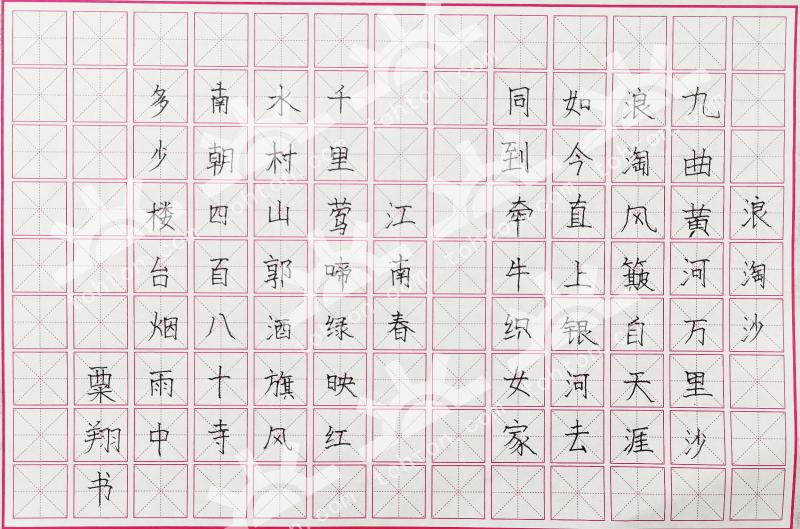 浪淘沙
九曲黄河万里沙
浪淘风簸自天涯
如今直上银河去
同到牵牛织女家
江南春
千里莺啼绿映红
水村山郭酒旗风
南朝四百八十寺
多少楼台烟雨中
粟翔书